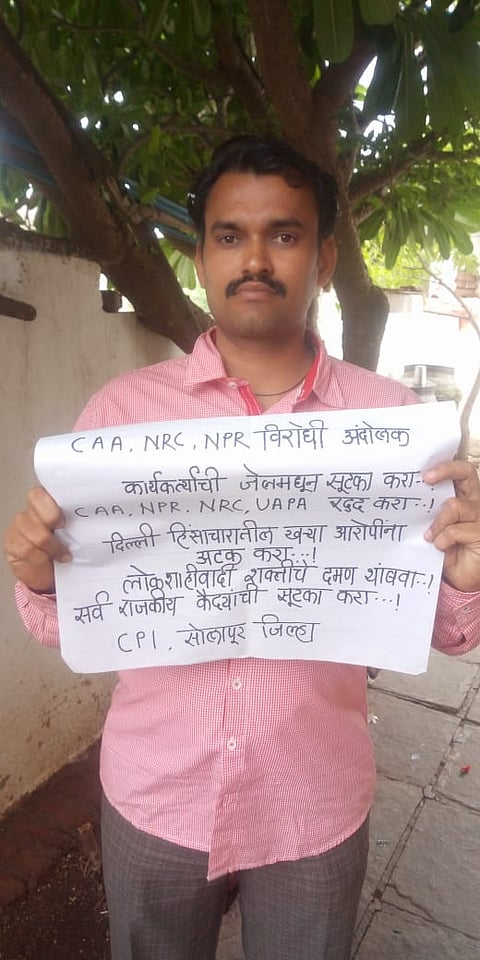 CAA, NRC, NPR विरोधी अंदोलक
कार्यकर्त्यांची जेलमधून सूटका करा..!
CAA, NPR, NRC, UAPA रद्द करा..!
दिल्ली हिंसाचारातील खऱ्या आरोपींना
अटक करा...!
लोकशाहीवादी शक्तींचे दमण थांबवा..!
सर्व राजकीय कैद्यांची सूटका करा...!
CPI, सोलापूर जिल्हा